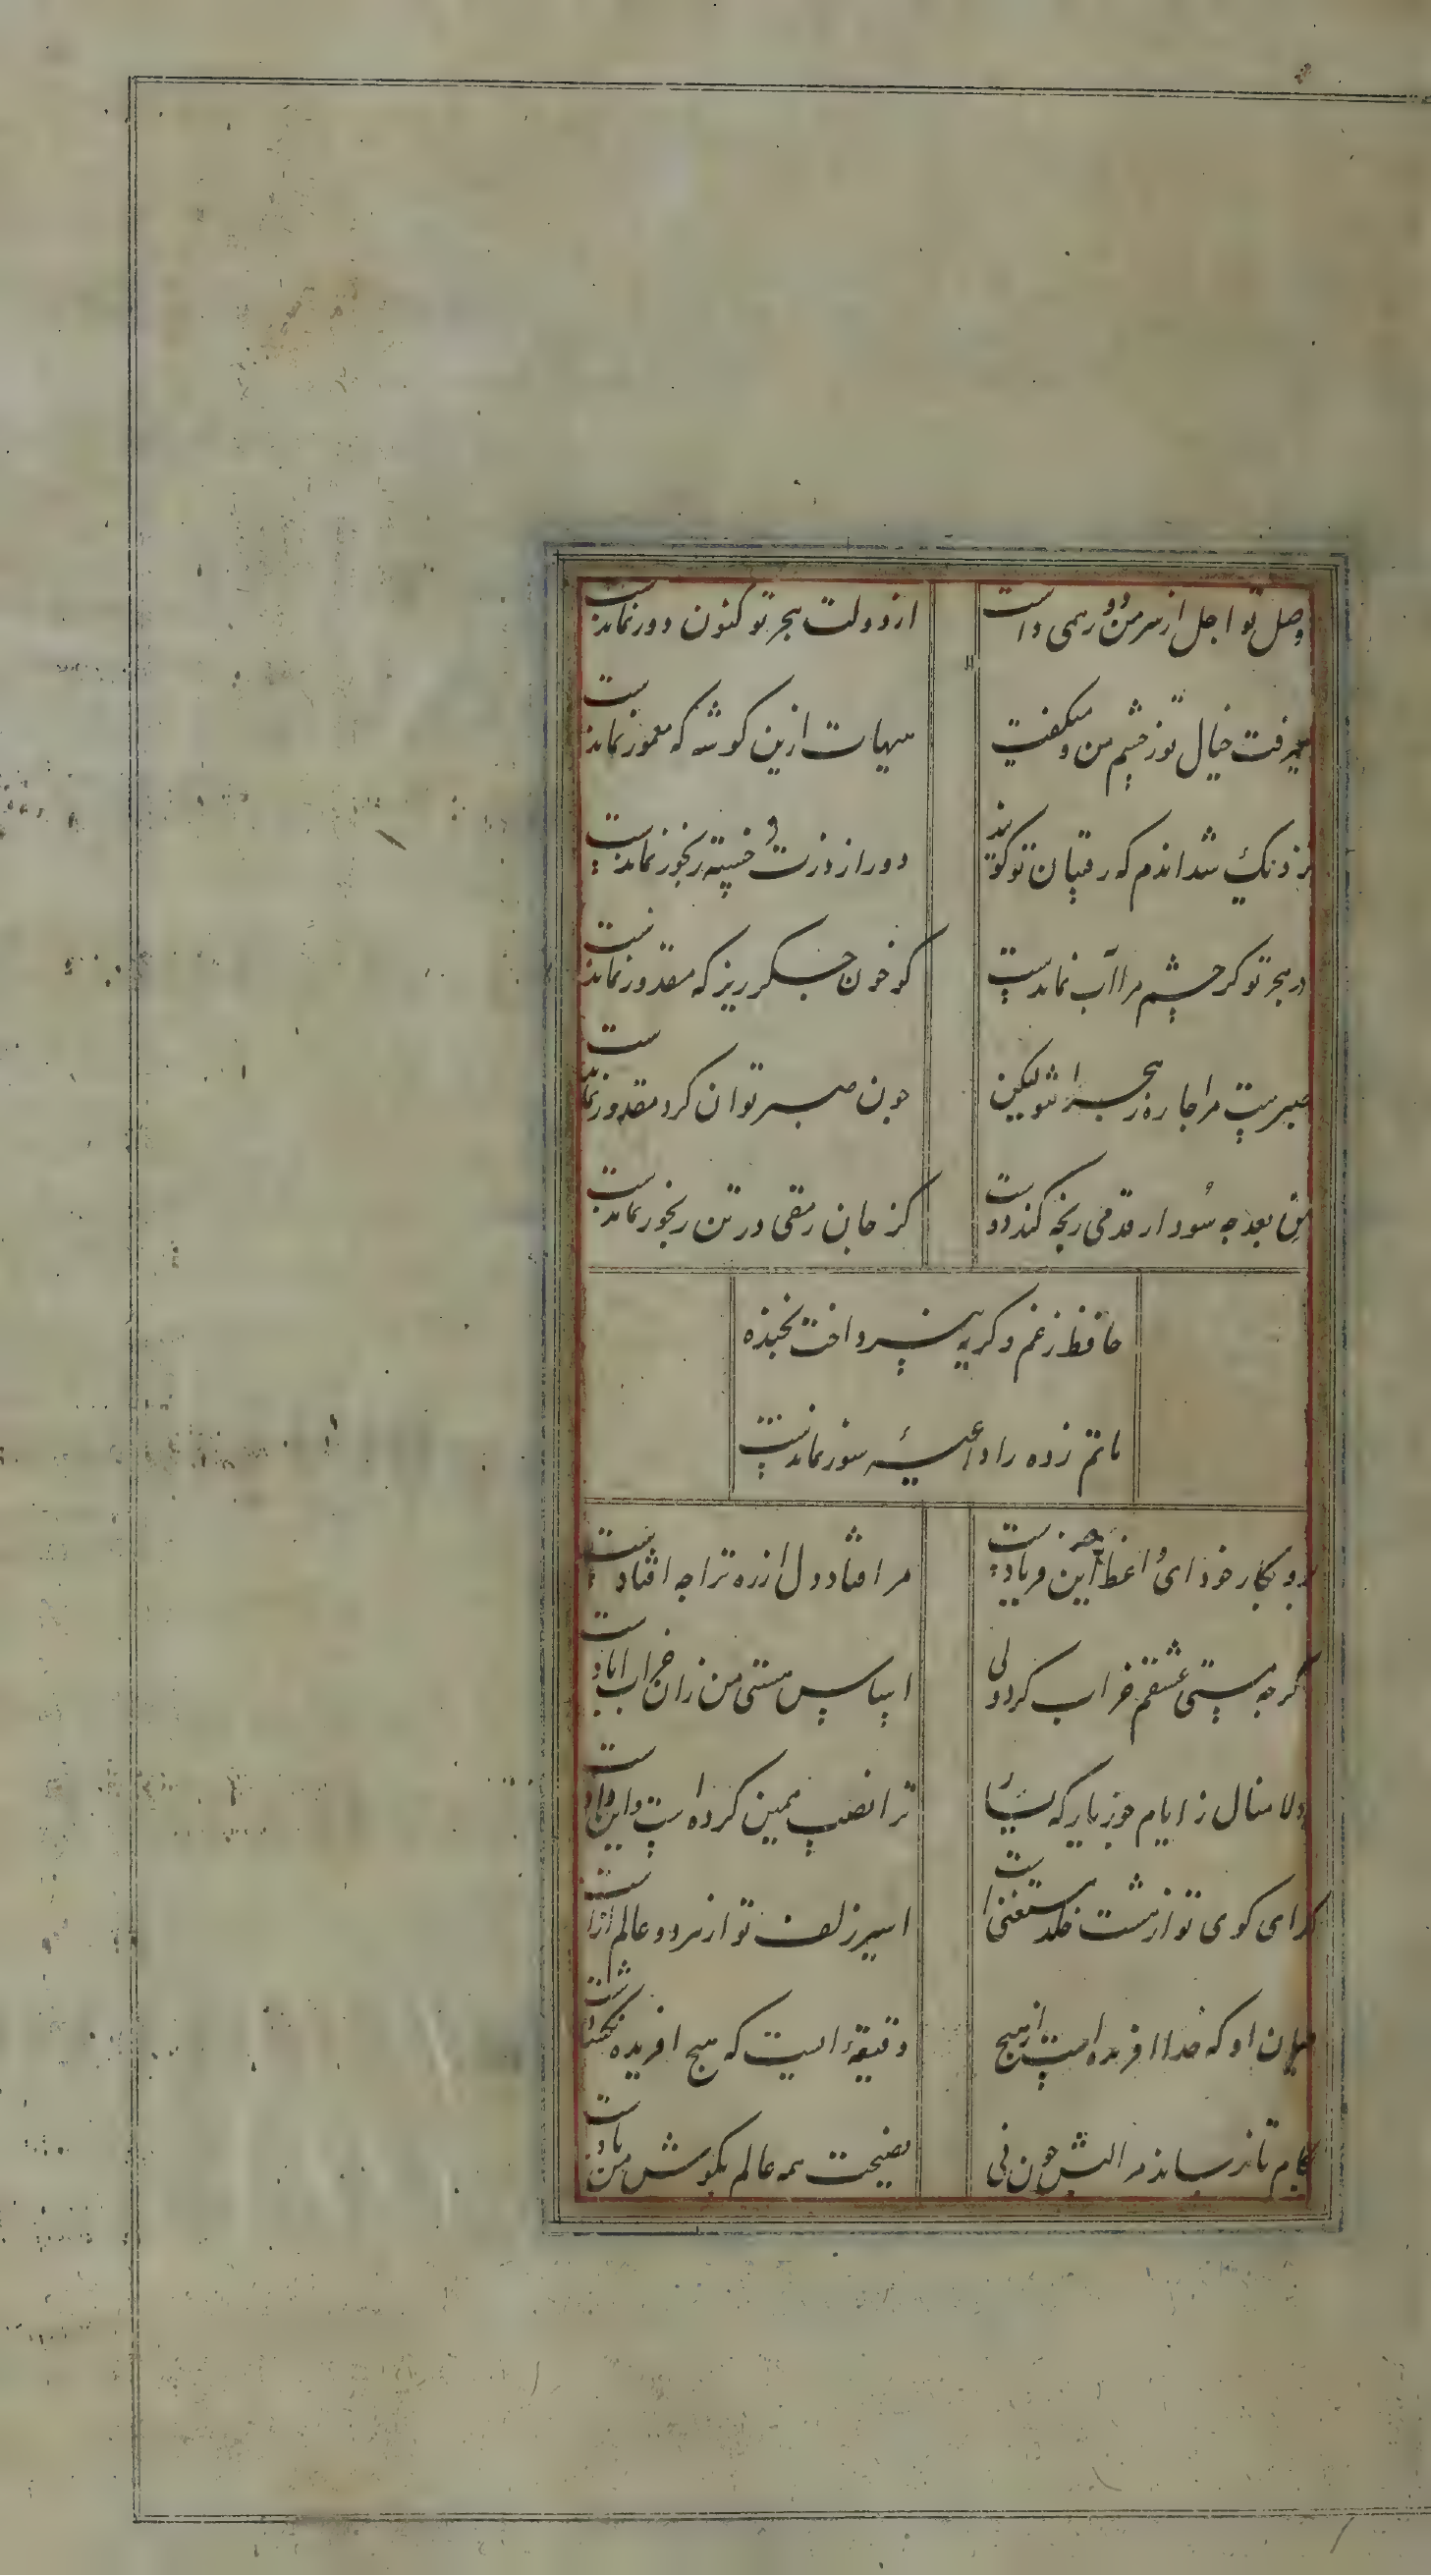 وصل تو اجل از سر من دور همی داشت
از دولت هجر تو کنون دور نماندست
میرفت خیال تو ز چشم من و میکفت
هیهات ازین کوشه که معمور نماندست
نزدیک شد اندم که رقیبان تو کویند
دور از درت و خسته رنجور نماندست
در هجر تو کر چشم مرا آب نماندست
کو خون جکر ریز که مقدور نماندست
صبرست مرا جاره ز هجران تو لیکن
جون صبر توان کرد مقدور نماندست
من بعد جه سود ار قدمی رنجه کند دوست
کز جان رمقی در تن رنجور نماندست
حافظ ز غم و کریه نپرداخت بخنده
ماتم زده را داعیه سور نماندست
برو بکار خوذ ای واعظ این جه فریادست
مرا فتاد دل از ره ترا جه افتادست
کرجه مستی عشقم خراب کرد ولی
اساس مستی من زان خراب ابادست
دلا منال ز
ترا نصیب همین کرده است و این دادست
کدای کوی تو از هشت خلد مستغنی است
اسیر زلف تو از هر دو عالم ازادست
میان او که خدا افریده است از هیچ
دقیقه ایست که هیچ افریده نکشادست
بکام تا نرساند مرا لبش جون نی
نصیحت همه عالم بکوش من بادست